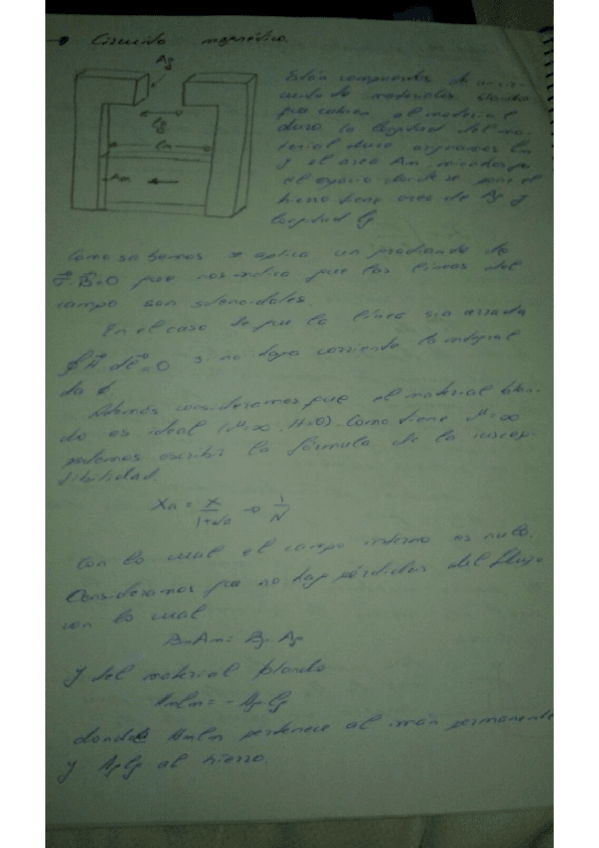 Circuito magnético.
Ag
lg
lm
Am
Están compuestos de un cir-
cuito de materiales blandos
que cubren al material
duro. la longitud del ma-
terial duro asignamos lm
y el area Am, mientras que
el espacio donde se pone el
hierro tiene area de Ag y
longitud lg
Como sabemos se aplica un
∇·B=0 que nos indica que las líneas del
campo son solenoidales.
En el caso de que la línea sea cerrada
∮ H dl = 0 si no haya corriente la integral
da 0.
Además consideramos que el material blan-
do es ideal (μ=∞, H=0). Como tiene μ=∞
podemos escribir la fórmula de la suscep-
tibilidad.
Con lo cual el campo interno es nulo.
Consideramos que no hay pérdidas del flujo
con lo cual
BmAm = Bg Ag
y del material blando
Hmlm = - Hg lg
donde Hmlm pertenece al imán permanente
y Hglg al hierro.